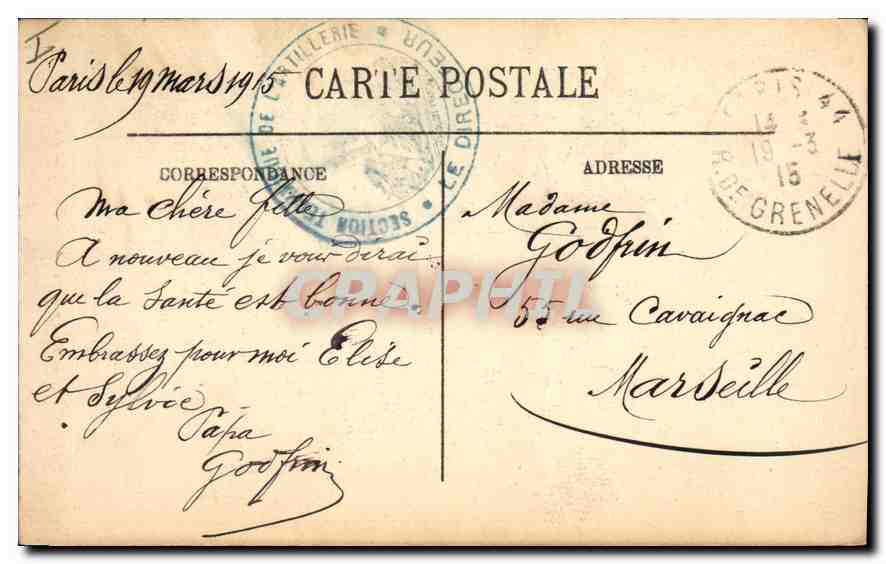 Paris le 19 mars 1915
CARTE POSTALE
SECTION TECHNIQUE DE L'ARTILLERIE
LE DIRECTEUR
PARIS 44
19 -3
15
R. DE GRENELLE
CORRESPONDANCE
ADRESSE
Ma chère fille
A nouveau je vous dirai
que la santé est bonne.
Embrassez pour moi Elise
et Sylvie
Papa
Godfrin
Madame
Godfrin
55 rue Cavaignac
Marseille
CPAPHIL